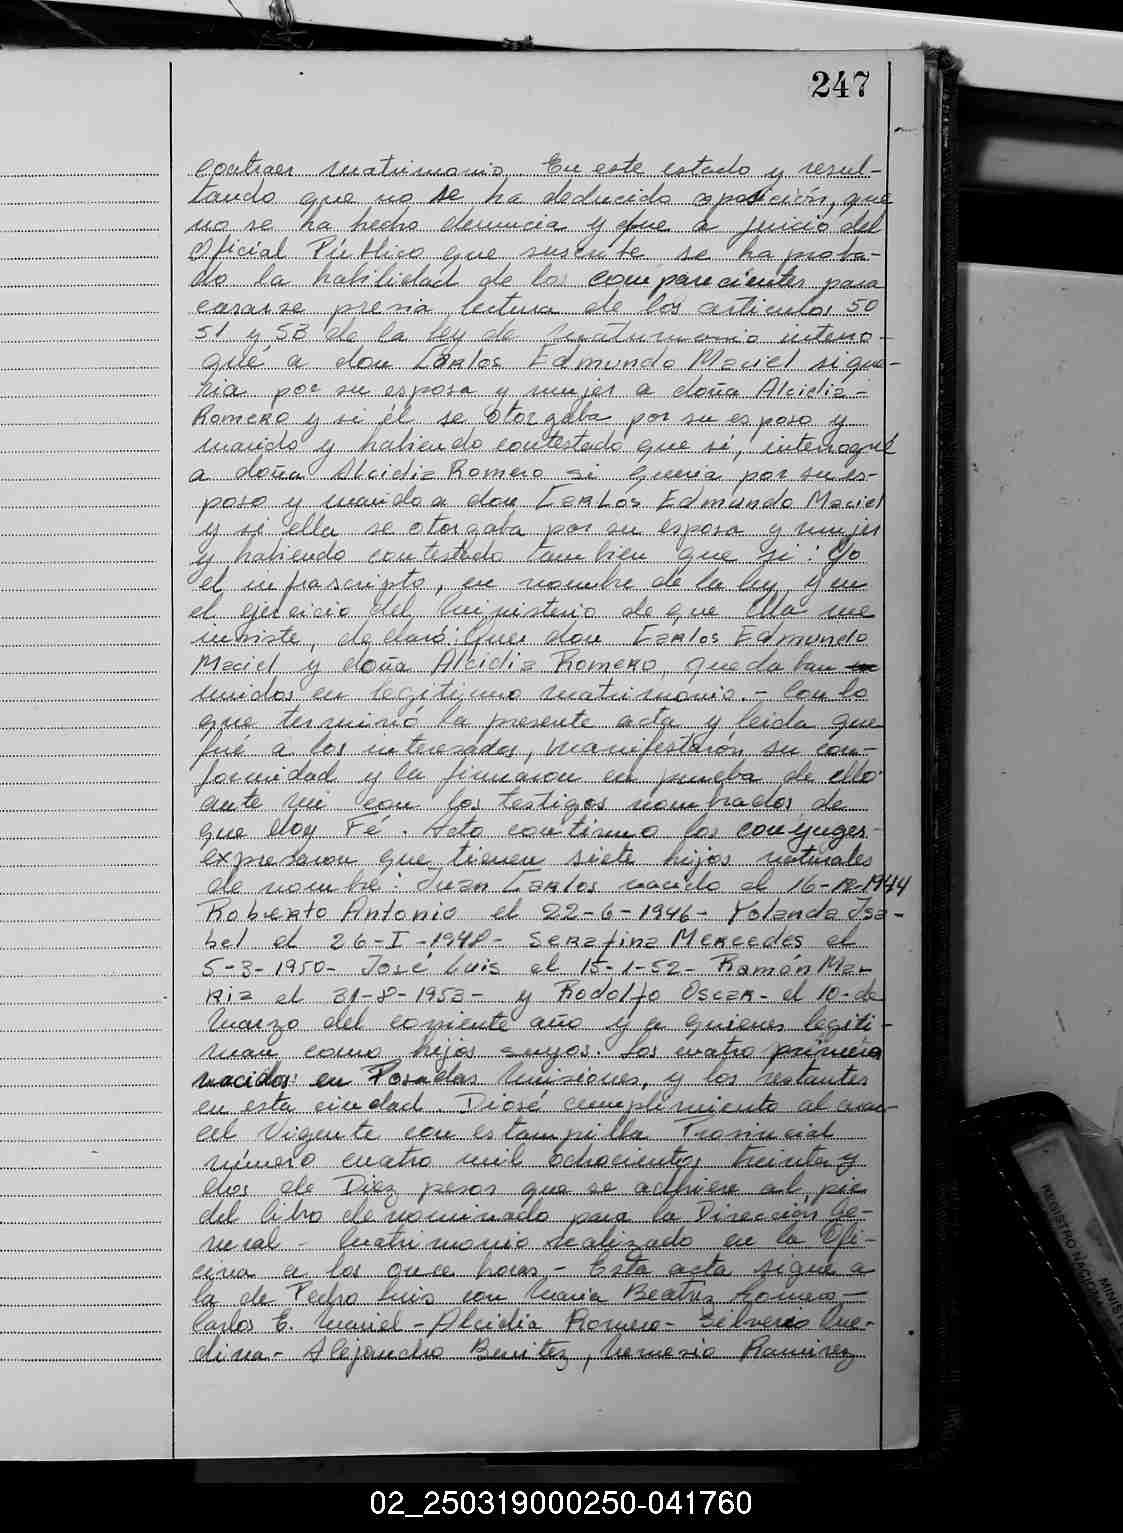 247
contraer matrimonio. En este estado y resul-
tando que no se ha deducido oposición, que
no se ha hecho denuncia y que a juicio del
Oficial Público que suscribe se ha proba-
do la habilidad de los comparecientes para
casarse previa lectura de los articulos 50
51 y 53 de la ley de matrimonio interro-
gué a don Carlos Edmundo Maciel si que-
ria por su esposa y mujer a doña Alcidia-
Romero y si él se otorgaba por su esposo y
marido y habiendo contestado que si, interrogué
a doña Alcidia Romero si queria por su es-
poso y marido a don Carlos Edmundo Maciel
y si ella se otorgaba por su esposa y mujer
y habiendo contestado tambien que si: Yo
el infrascripto, en nombre de la ley y en
el ejercicio del Ministerio de que ella me
inviste, declaró: Que don Carlos Edmundo
Maciel y doña Alcidia Romero, quedaban
unidos en legitimo matrimonio.- Con lo
que terminó la presente acta y leida que
fué a los interesados, manifestarón su con-
formidad y la firmaron en prueba de ello
ante mi con los testigos nombrados de
que doy Fé. Acto continuo los conyuges-
expresaron que tienen siete hijos naturales
de nombre: Juan Carlos nacido el 16-12-1944
Roberto Antonio el 22-6-1946- Yolanda Isa-
bel el 26-I-1948- Serafina Mercedes el
5-3-1950- José Luis el 15-1-52- Ramón Ma-
ria el 31-8-1953- y Rodolfo Oscar- el 10-de
Marzo del corriente año y a quienes legiti-
man como hijos suyos. Los cuatro primeros
nacidos en Posadas Misiones, y los restantes
en esta ciudad. Diosé cumplimiento al aran-
cel Vigente con estampilla Provincial
número cuatro mil ochocientos treinta y
dos de Diez pesos que se adhiere al pie
del libro denominado para la Dirección Ge-
neral - Matrimonio realizado en la Ofi-
cina a las once horas - Esta acta sigue a
la de Pedro Luis con Maria Beatriz Romero-
Carlos E. Maciel - Alcidia Romero- Silverio
dina- Alejandro Benitez, Nemesio Ramirez
REGISTRO NACIONAL
MINIST
02_250319000250-041760